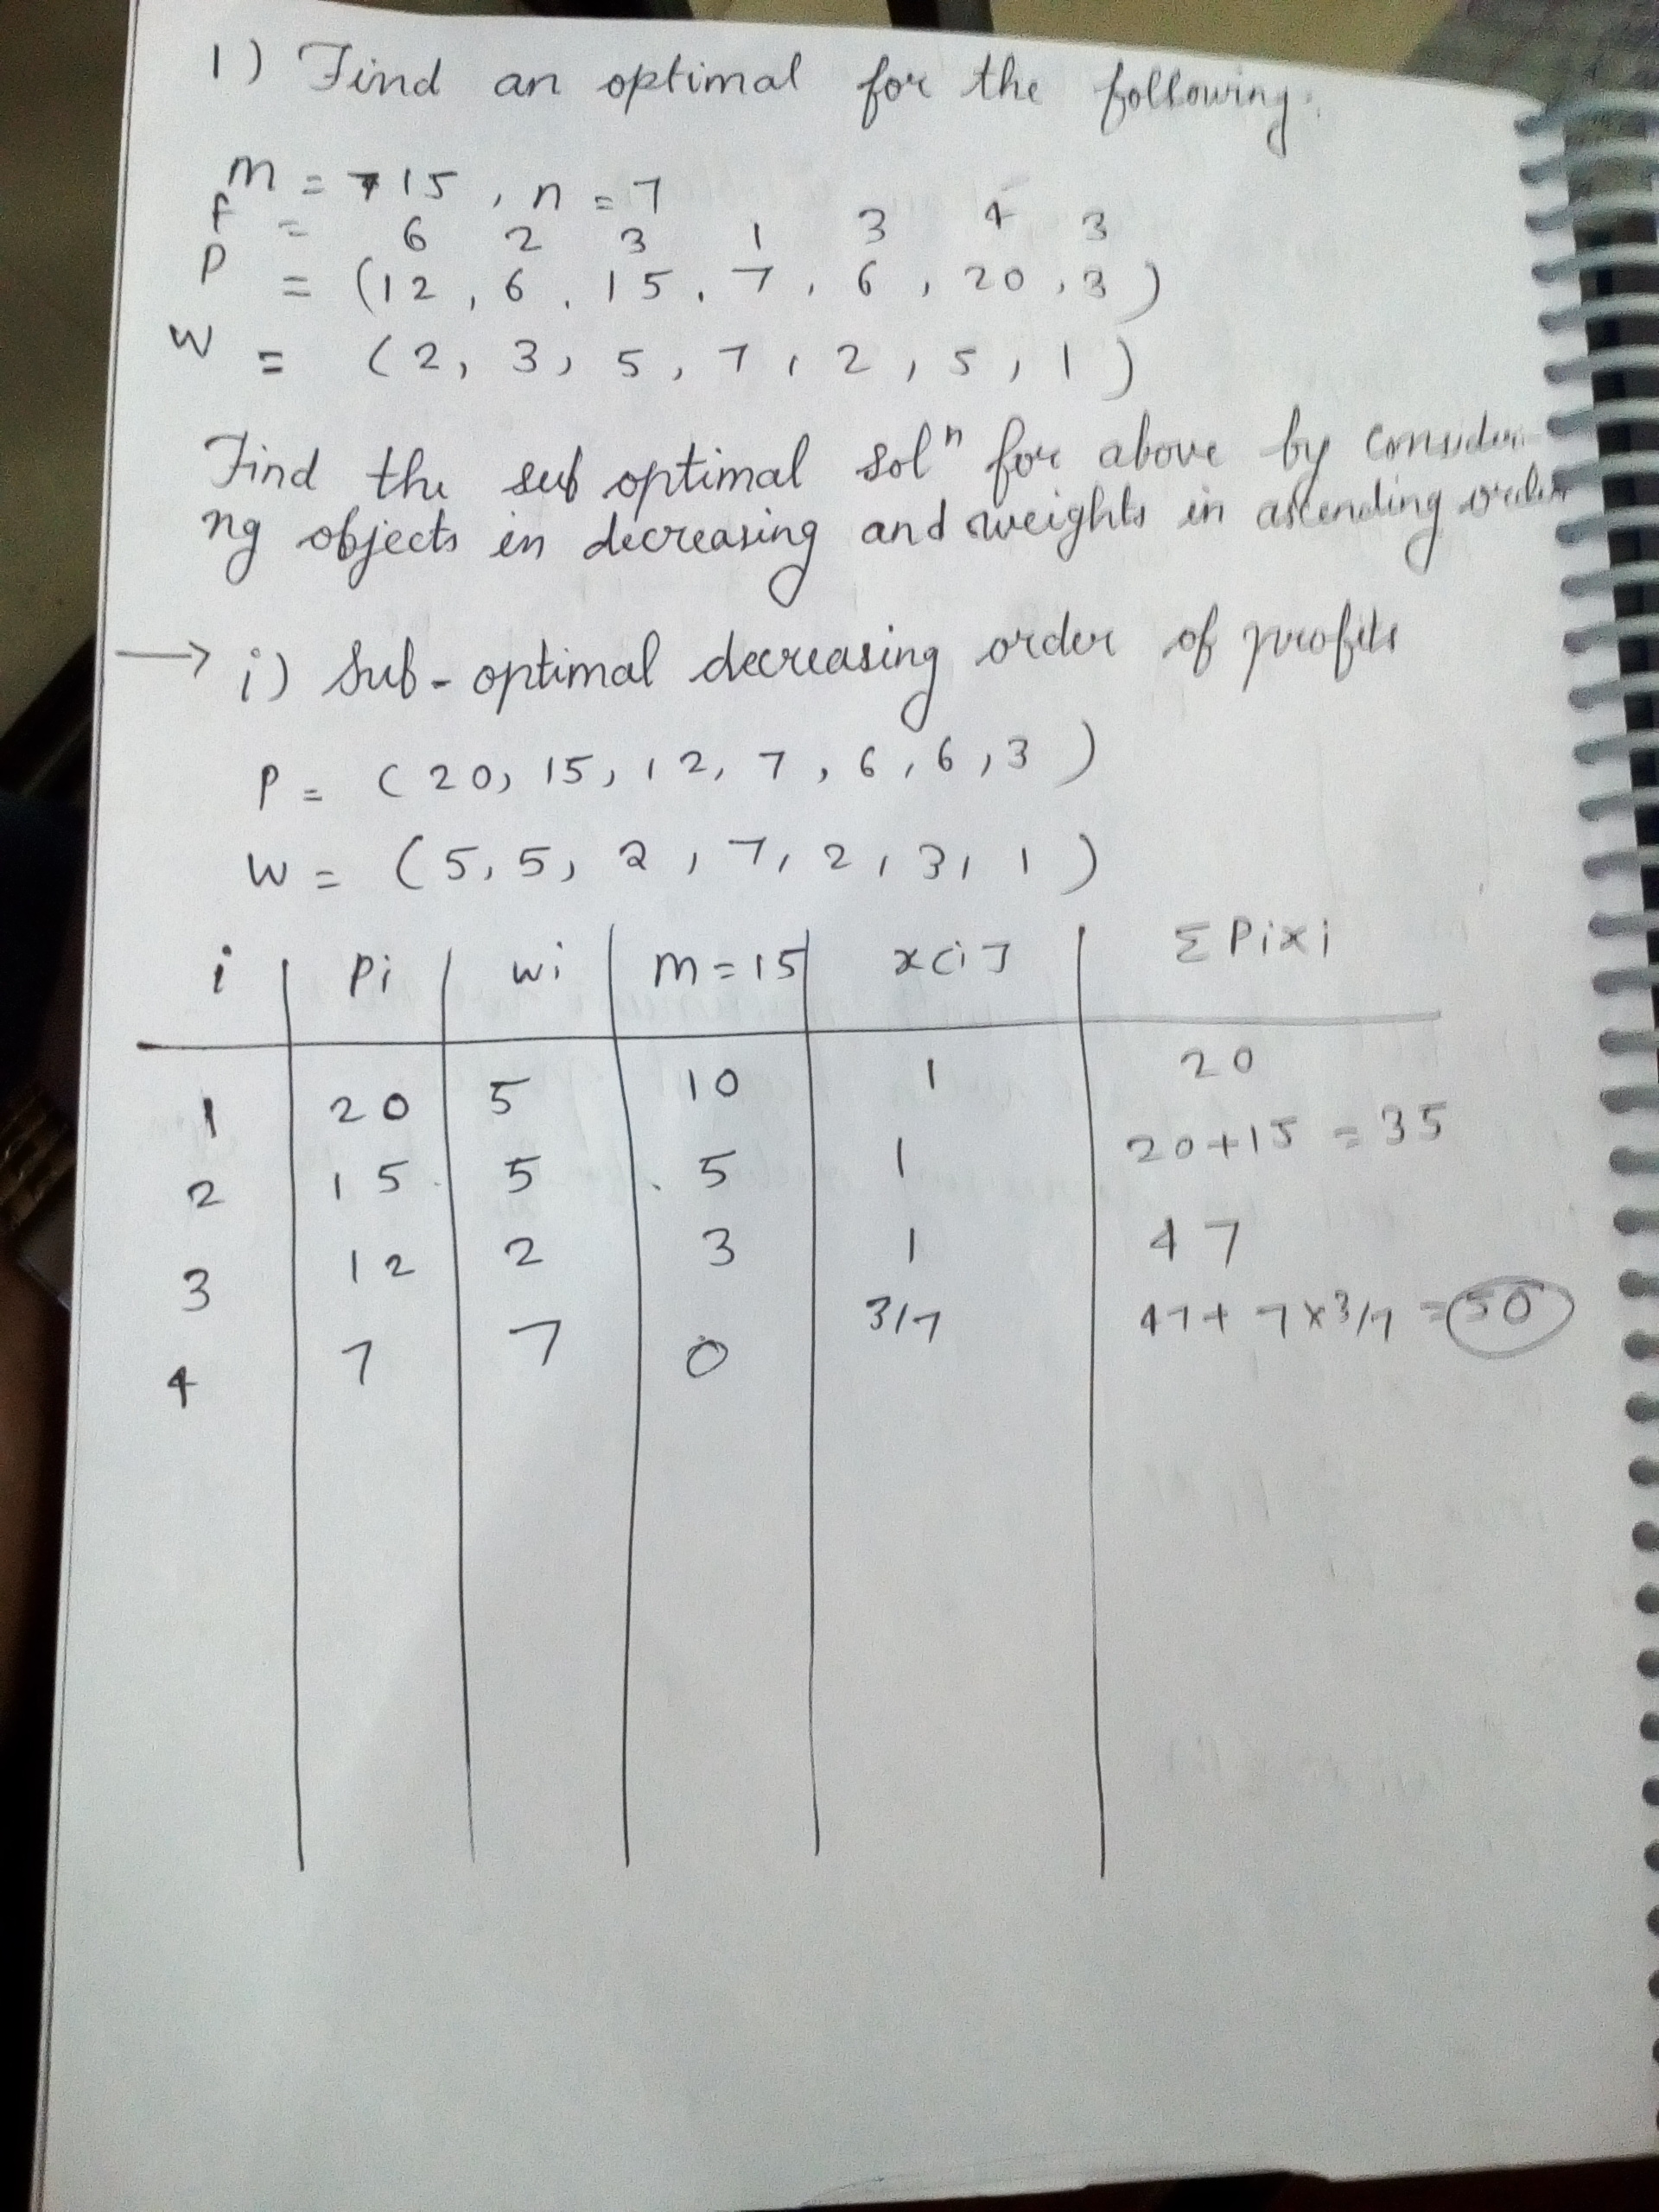 1) Find an optimal for the following.
m = 15, n = 7
F = 6 2 3 1 3 4 3
P = (12, 6, 15, 7, 6, 20, 3)
W = (2, 3, 5, 7, 2, 5, 1)
Find the sub optimal solⁿ for above by consideri
ng objects in decreasing and weights in ascending order
→ i) Sub-optimal decreasing order of profits
P = (20, 15, 12, 7, 6, 6, 3)
W = (5, 5, 2, 7, 2, 3, 1)
i | Pi | wi | m=15 | x[i] | Σ Pixi
1 | 20 | 5 | 10 | 1 | 20
2 | 15 | 5 | 5 | 1 | 20+15 = 35
3 | 12 | 2 | 3 | 1 | 47
4 | 7 | 7 | 0 | 3/7 | 47+7×3/7 = 50